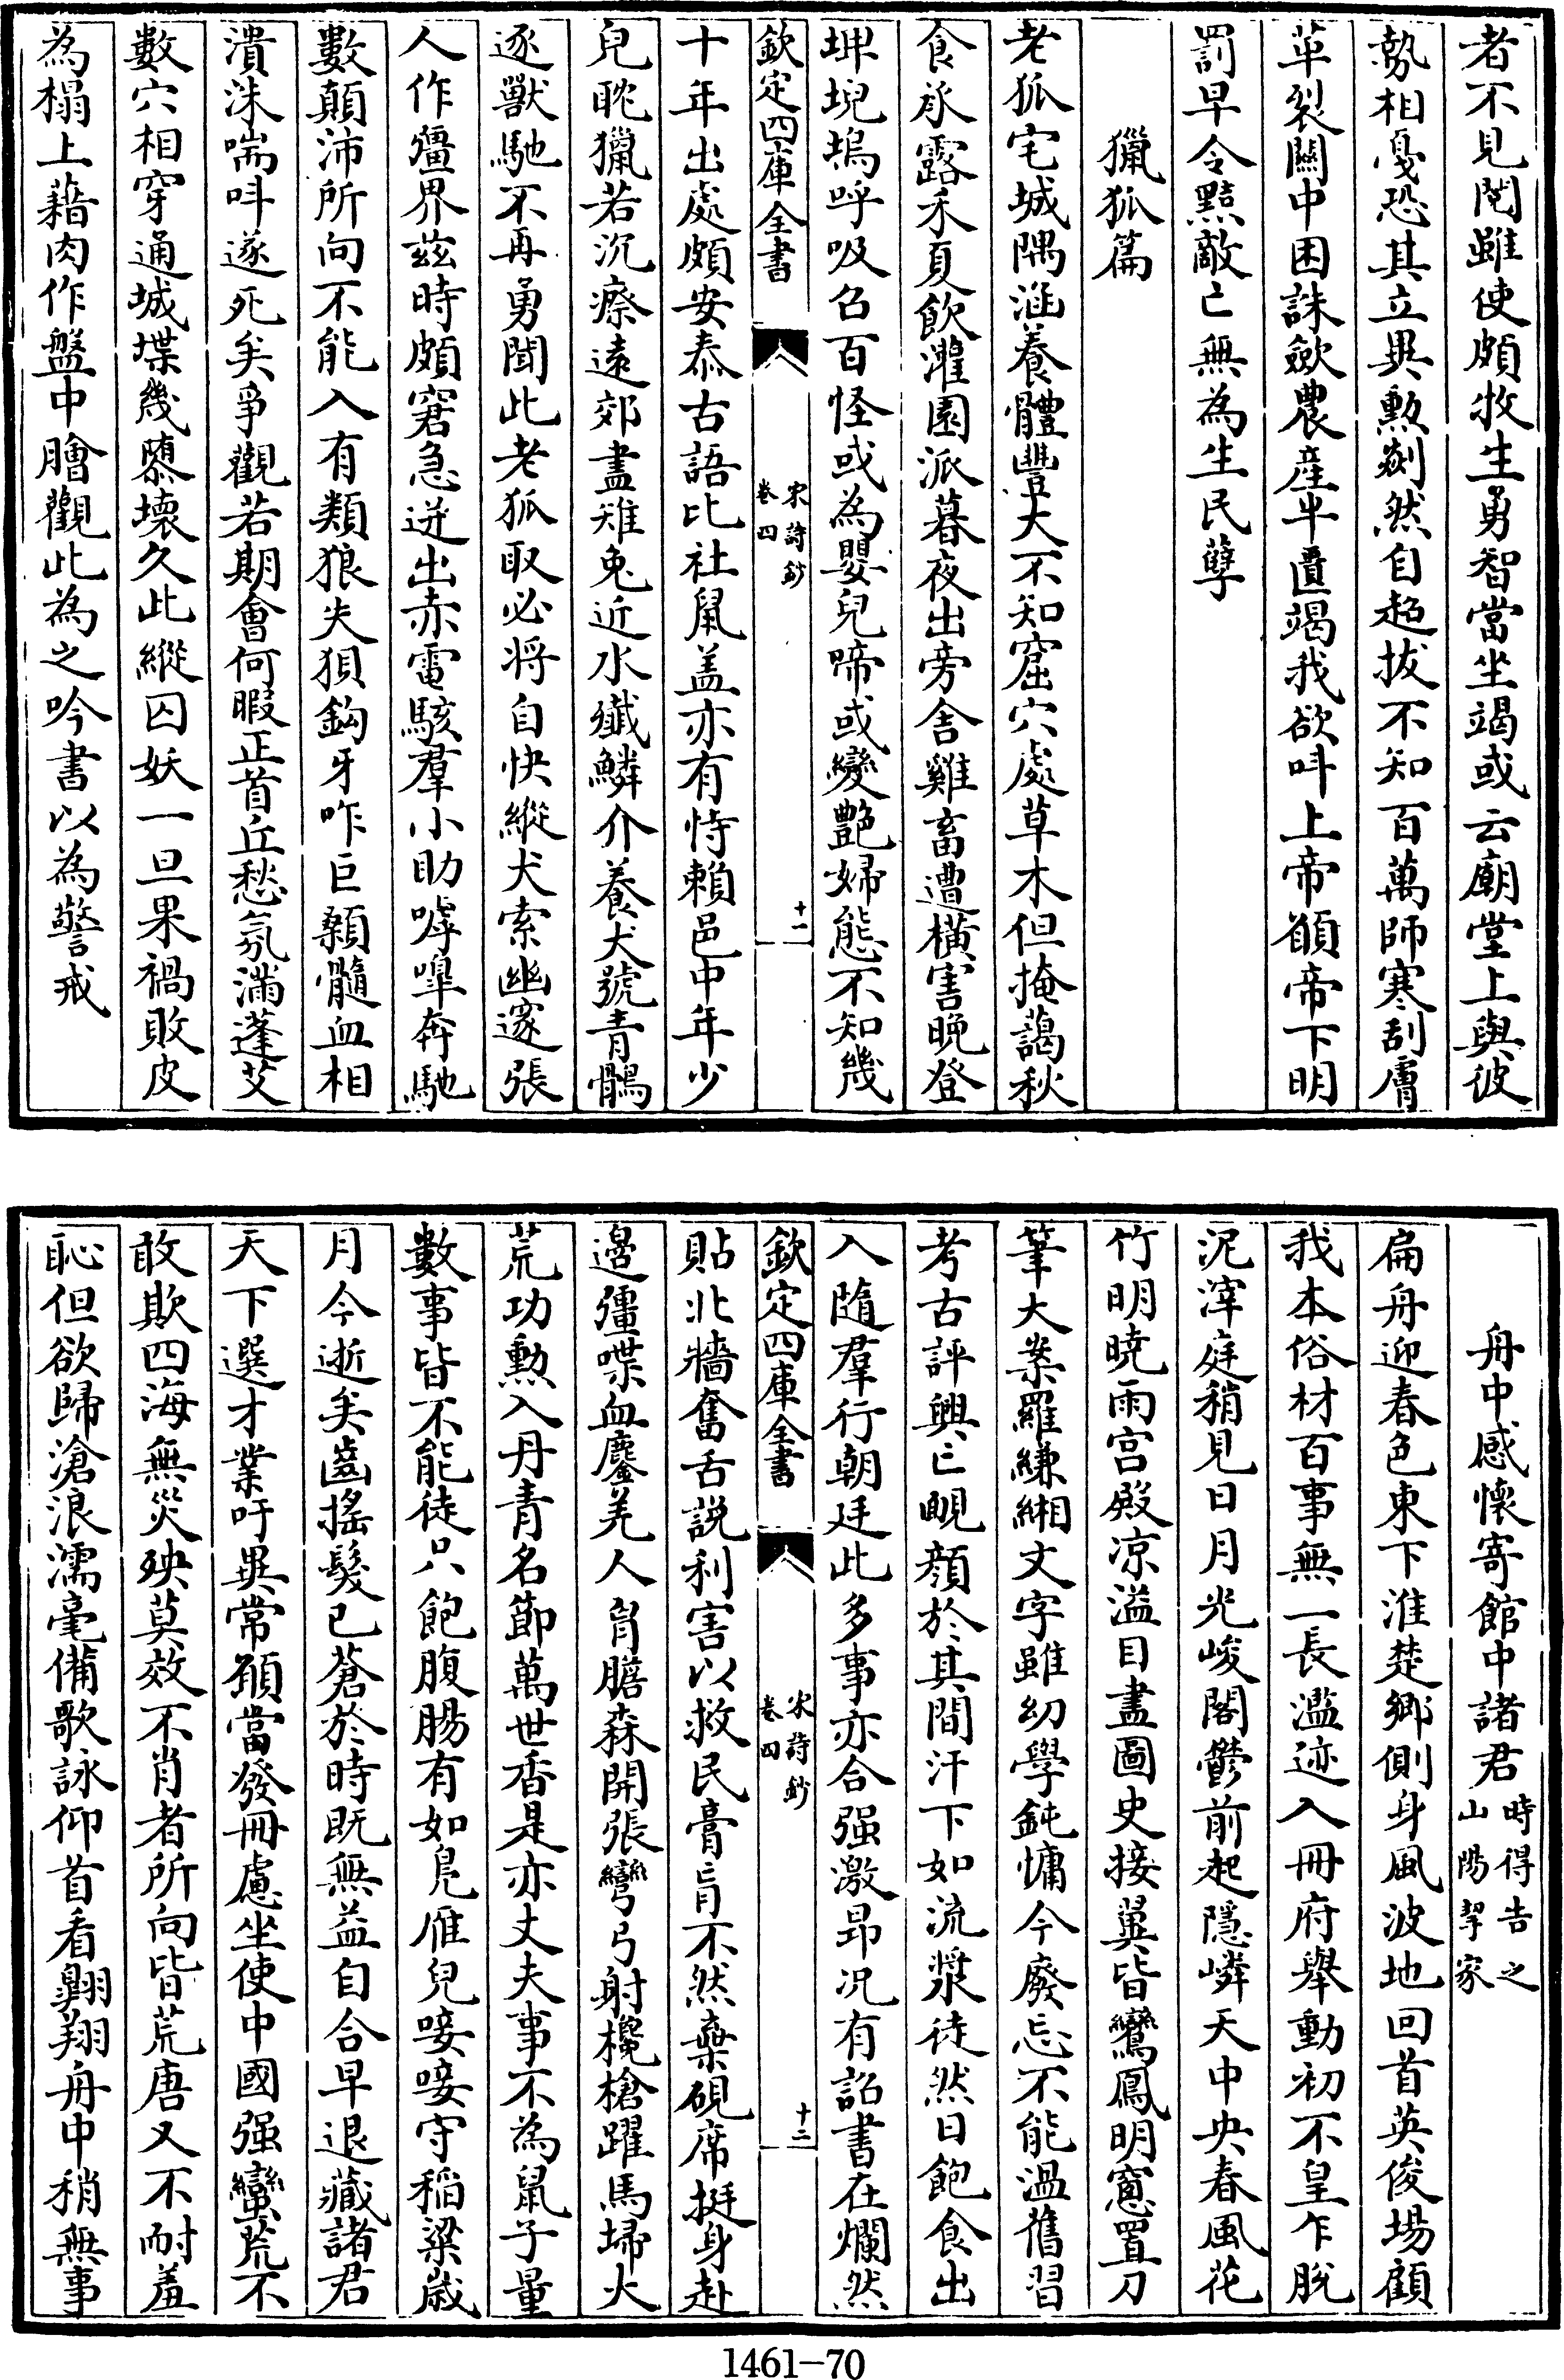 者不見閱雖使頗牧生勇智當坐竭或云廟堂上與彼
勢相戞恐其立異勲剡然自超拔不知百萬師寒刮膚
革裂關中困誅歛農産半匱竭我欲呌上帝願帝下明
罰早令黠敵亡無為生民孽
獵狐篇
老狐宅城隅涵養體豐大不知窟穴處草木但掩藹秋
食承露禾夏飲灌園派暮夜出旁舍雞畜遭横害晚登
埤堄塢呼吸召百怪或為嬰兒啼或變艶婦態不知幾
欽定四庫全書 宋詩鈔 卷四 十一
十年出處頗安泰古語比社鼠盖亦有恃賴邑中年少
兒眈獵若沉瘵遠郊盡雉兔近水殲鱗介養犬號青鶻
逐獸馳不再勇聞此老狐取必将自快縱犬索幽邃張
人作疆界兹時頗窘急迸出赤電駭羣小助嘑嘷奔馳
數顛沛所向不能入有類狼失狽鈎牙咋巨顙髓血相
潰沬喘呌遂死矣爭觀若期會何暇正首丘愁氛滿蓬艾
數穴相穿通城堞幾隳壞久此縱囚妖一旦果禍敗皮
為榻上藉肉作盤中膾觀此為之吟書以為警戒
舟中感懷寄館中諸君 時得告之山陽挈家
扁舟迎春色東下淮楚鄉側身風波地回首英俊場顧
我本俗材百事無一長濫迹入冊府舉動初不皇乍脫
泥滓庭稍見日月光峻閣鬱前起隱嶙天中央春風花
竹明曉雨宫殿凉溢目盡圖史接翼皆鸞鳳明窻置刀
筆大案羅縑緗文字雖幼學鈍慵今廢忘不能溫舊習
考古評興亡靦顔於其間汗下如流漿徒然日飽食出
入隨羣行朝廷此多事亦合强激昻况有詔書在爛然
欽定四庫全書 宋詩鈔 卷四 十二
貼北牆奮舌説利害以救民膏肓不然棄硯席挺身赴
邊疆喋血鏖羌人胷膽森開張彎弓射欃槍躍馬埽大
荒功勲入丹青名節萬世香是亦丈夫事不為鼠子量
數事皆不能徒只飽腹腸有如鳬雁兒唼唼守稻粱歲
月今逝矣齒搖髮已蒼於時既無益自合早退藏諸君
天下選才業吁異常願當發冊慮坐使中國强蠻荒不
敢欺四海無災殃莫效不肖者所向皆荒唐又不耐羞
恥但欲歸滄浪濡毫備歌詠仰首看翺翔舟中稍無事
1461-70